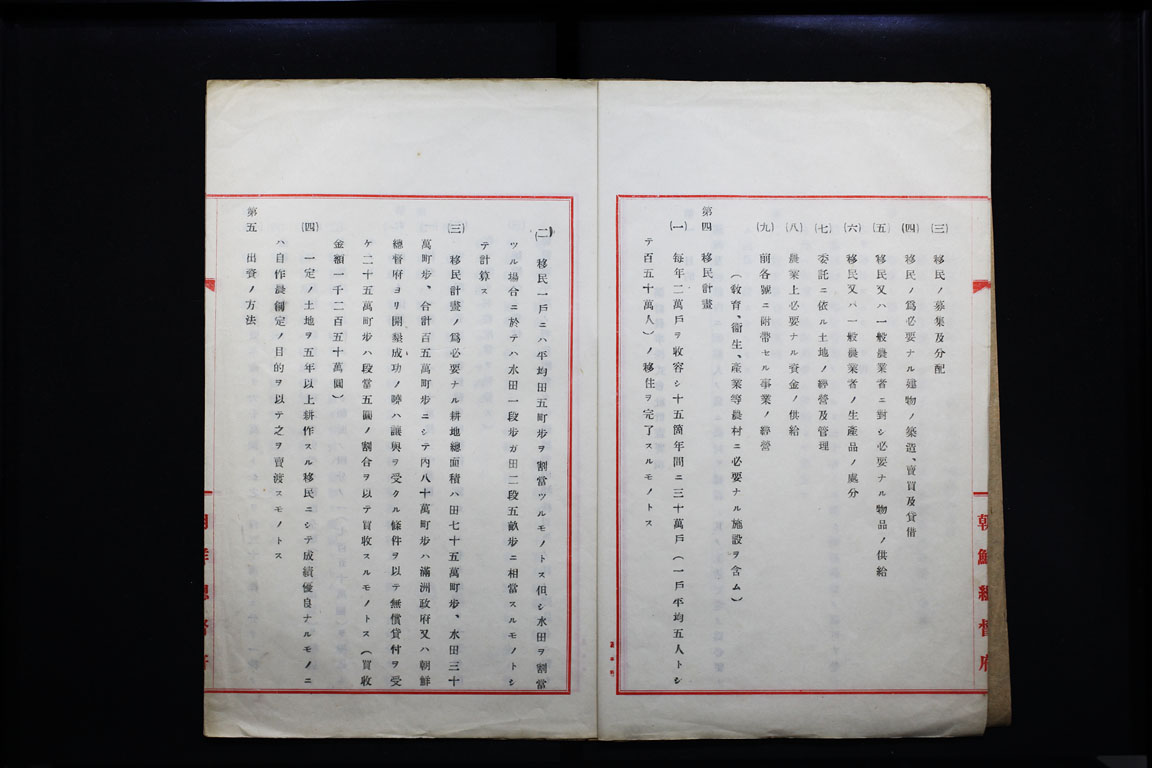 (三) 移民ノ募集及分配
(四) 移民ノ爲必要ナル建物ノ築造、賣買及貸借
(五) 移民又ハ一般農業者ニ對シ必要ナル物品ノ供給
(六) 移民又ハ一般農業者ノ生產品ノ處分
(七) 委託ニ依ル土地ノ經營及管理
(八) 農業上必要ナル資金ノ供給
(九) 前各號ニ附帶セル事業ノ經營
(敎育、衞生、產業等農村ニ必要ナル施設ヲ含ム)
第四 移民計畫
(一) 每年二萬戶ヲ收容シ十五箇年間ニ三十萬戶(一戶平均五人トシ
テ百五十萬人)ノ移住ヲ完了スルモノトス
(二) 移民一戶ニハ平均田五町步ヲ割當ツルモノトス但シ水田ヲ割當
ツル場合ニ於テハ水田一段步ガ田二段五畝步ニ相當スルモノトシ
テ計算ス
(三) 移民計畫ノ爲必要ナル耕地總面積ハ田七十五萬町步、水田三十
萬町步、合計百五萬町步ニシテ內八十萬町步ハ滿洲政府又ハ朝鮮
總督府ヨリ開墾成功ノ曉ハ讓與ヲ受クル條件ヲ以テ無償貸付ヲ受
ケ二十五萬町步ハ段當五圓ノ割合ヲ以テ買收スルモノトス(買收
金額一千二百五十萬圓)
(四) 一定ノ土地ヲ五年以上耕作スル移民ニシテ成績優良ナルモノニ
ハ自作農創定ノ目的ヲ以テ之ヲ賣渡スモノトス
第五 出資ノ方法
朝鮮總督府
朝鮮總督府